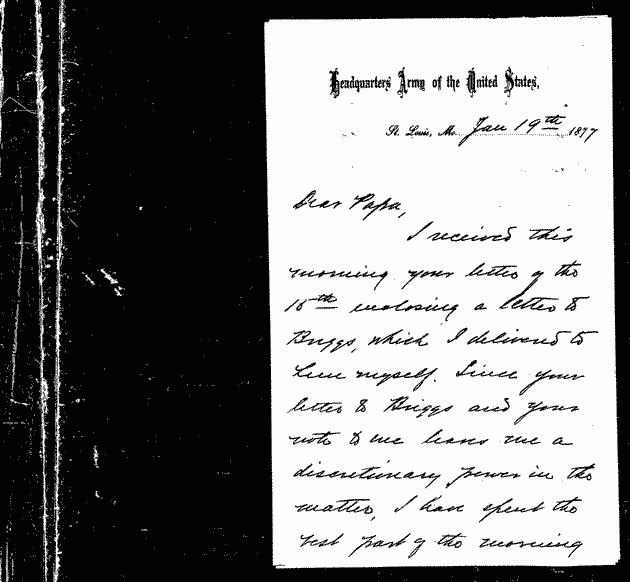 Headquarters Army of the United States,
St. Louis, Mo. Jan 19th 1877
Dear Papa,
I received this
morning your letter of the
15th enclosing a letter to
Briggs, which I delivered to
him myself. Since your
letter to Briggs and your
note to me leaves me a
discretionary power in the
matter, I have spent the
rest part of the morning